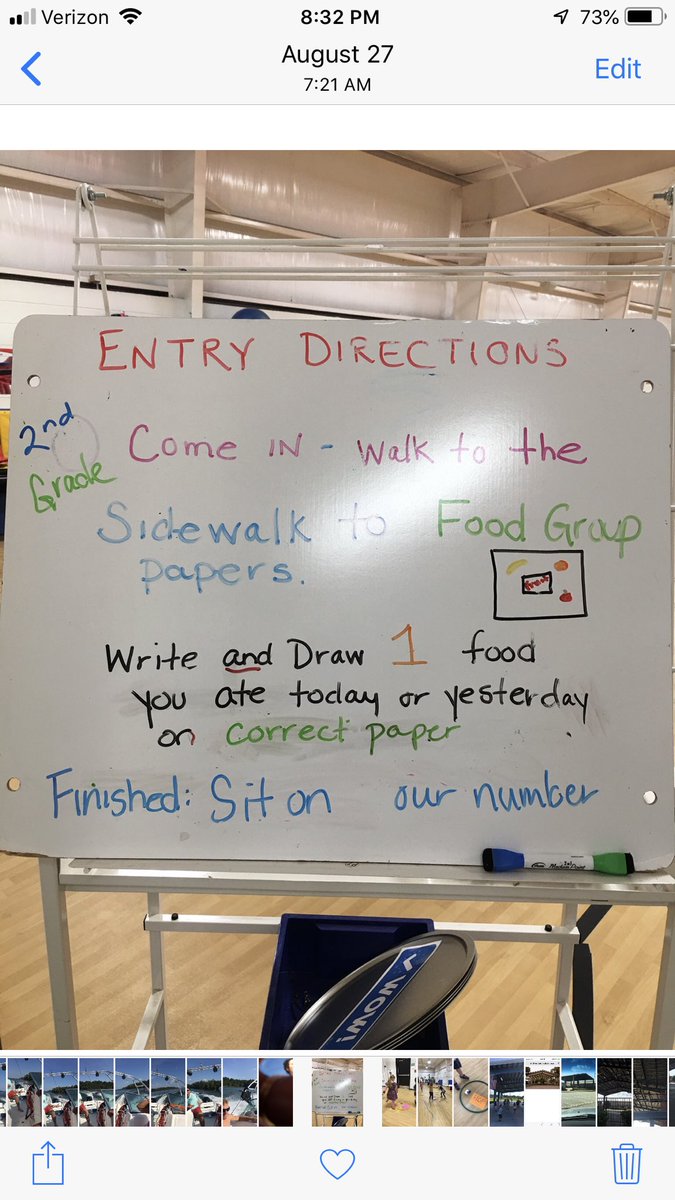 Verizon 8:32 PM 73%
August 27
7:21 AM
Edit
ENTRY DIRECTIONS
2nd Grade
Come IN - Walk to the
Sidewalk to Food Group
papers.
Fruit
Write and Draw 1 food
you ate today or yesterday
on correct paper
Finished: Sit on our number
WOW!